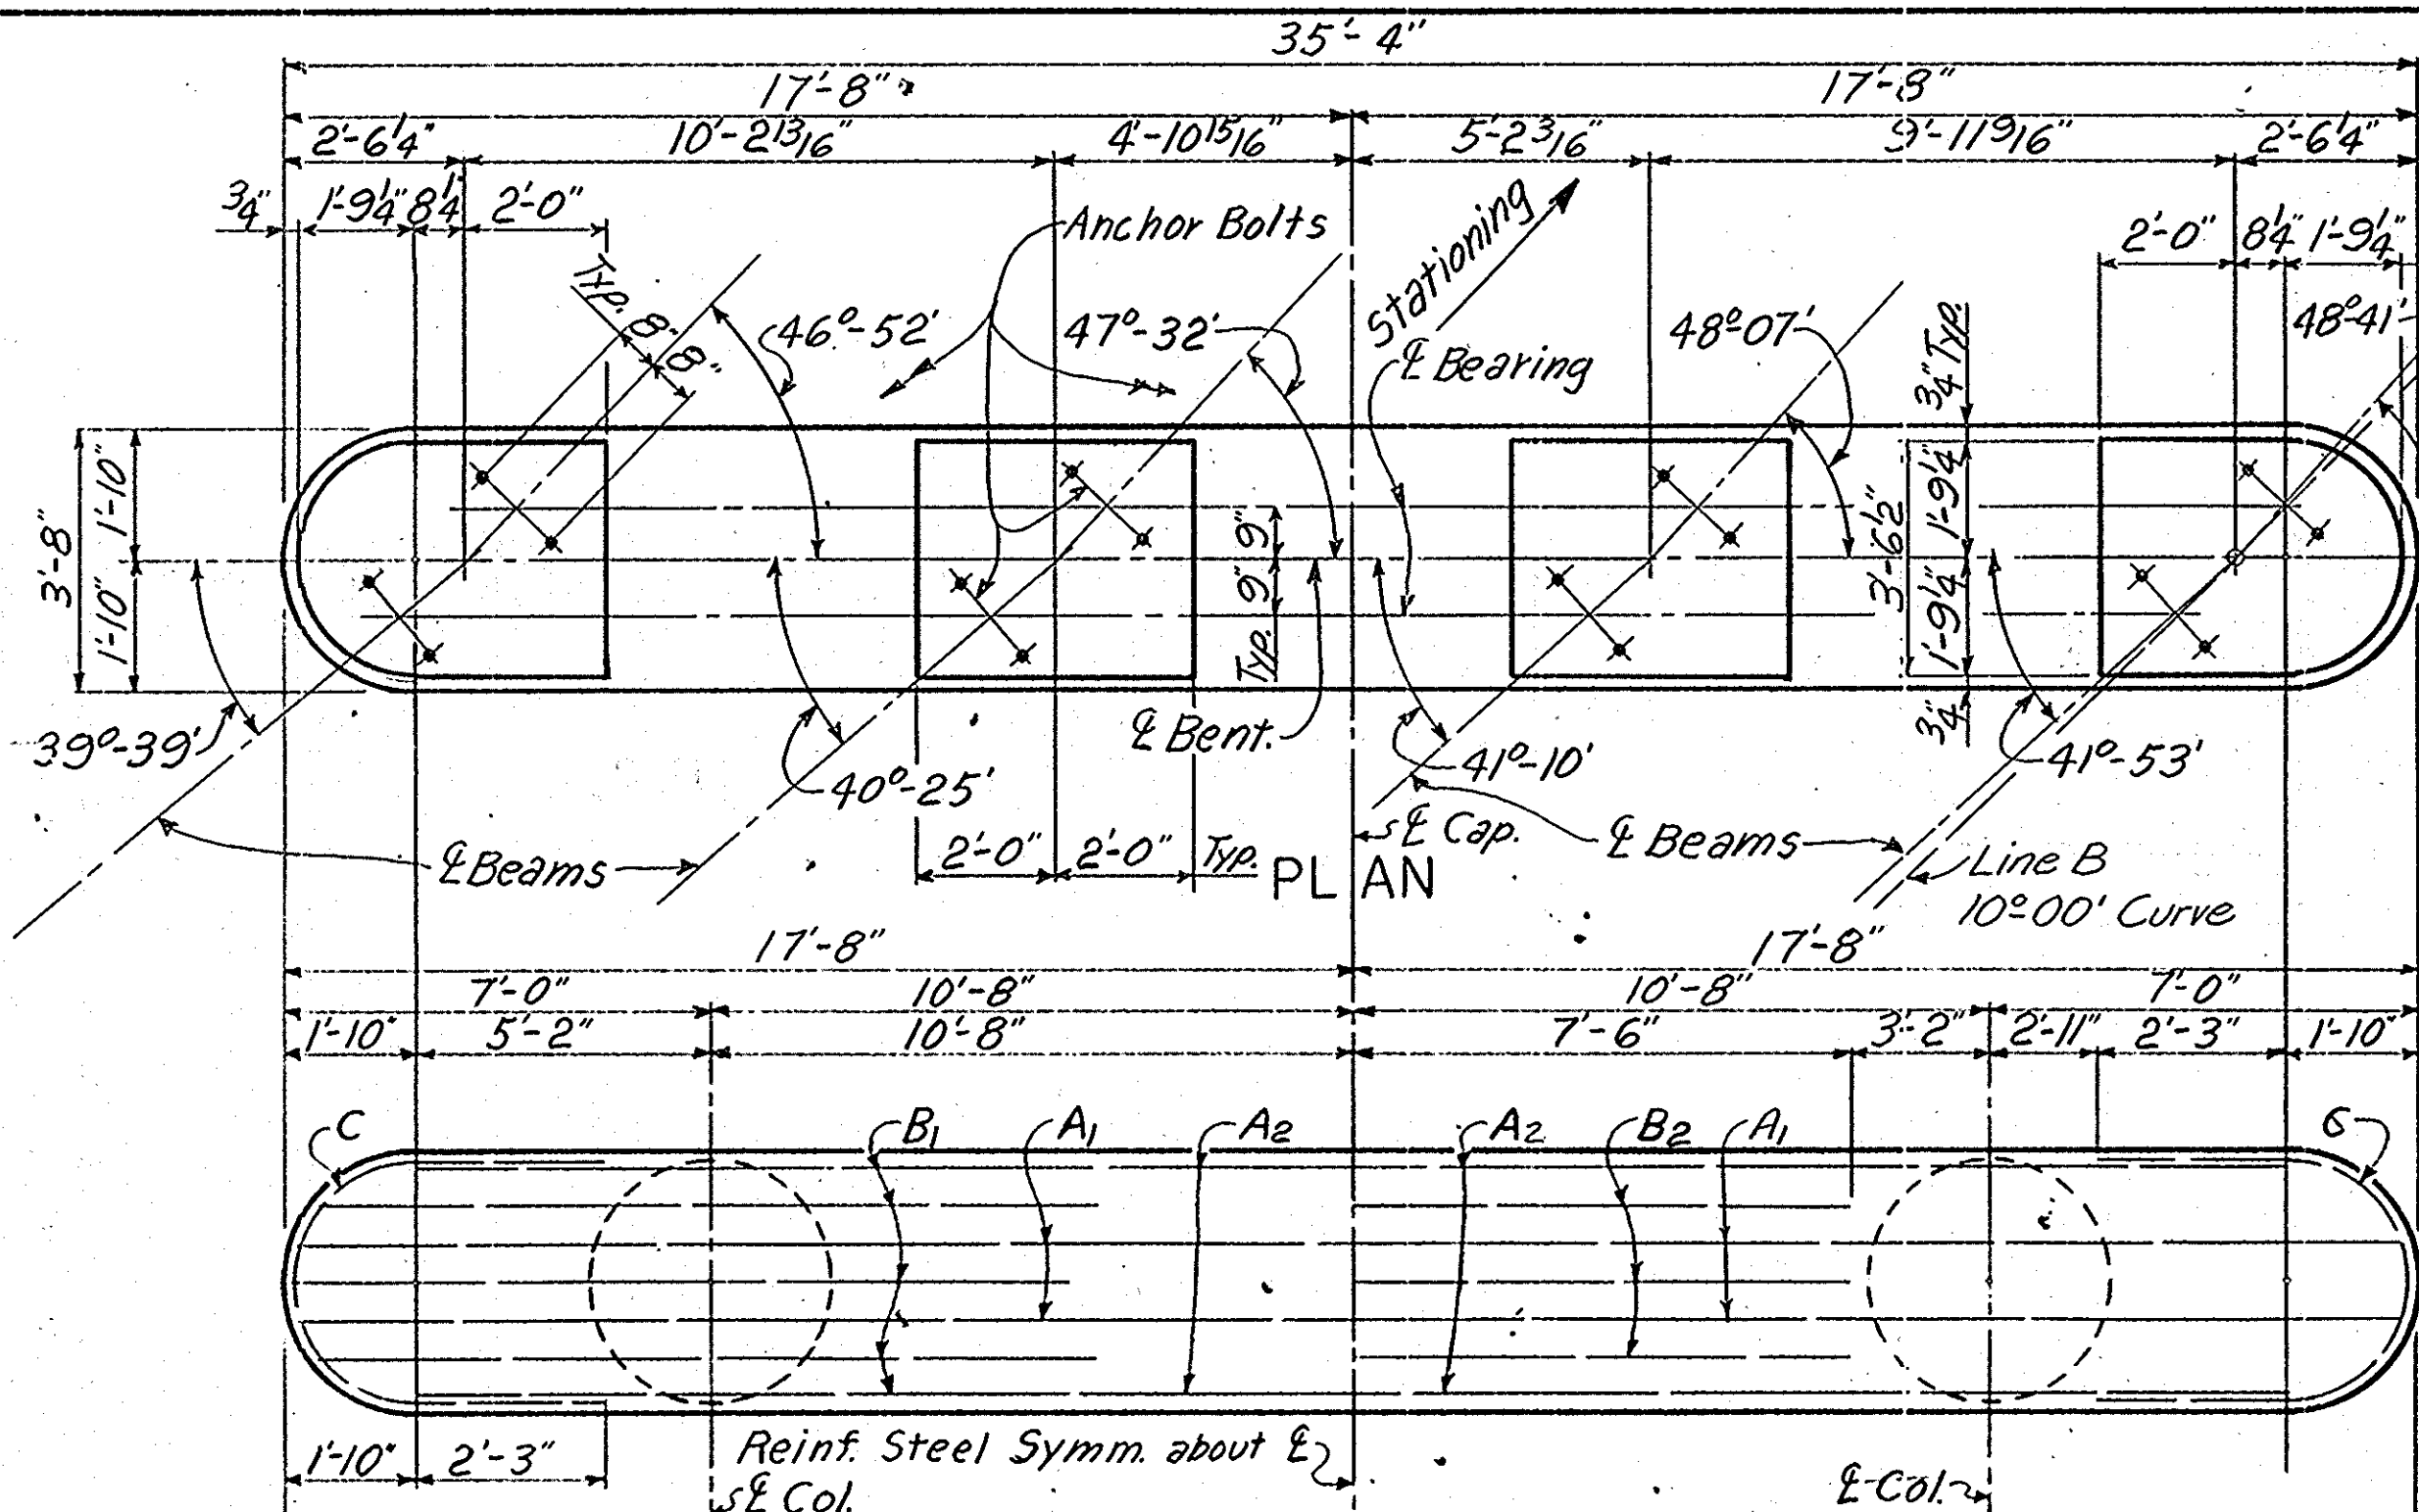 35'-4"
17'-8" 17'-8"
2'-6¼" 10'-2 13/16" 4'-10 15/16" 5'-2 3/16" 9'-11 9/16" 2'-6¼"
¾" 1'-9¼" 8¼" 2'-0" Anchor Bolts Stationing 2'-0" 8¼" 1'-9¼"
Typ. 8" 8" 46°-52' 47°-32' ℄ Bearing 48°-07' ¾" Typ. 48°-41'
3'-8" 1'-10" 1'-10" Typ. 9" 9" 3'-6½" 1'-9¼" 1'-9¼" ¾"
39°-39' 40°-25' ℄ Bent. 41°-10' 41°-53'
℄ Beams 2'-0" 2'-0" Typ. ℄ Cap. ℄ Beams Line B
10°00' Curve
PLAN
17'-8" 17'-8"
7'-0" 10'-8" 10'-8" 7'-0"
1'-10" 5'-2" 10'-8" 7'-6" 3'-2" 2'-11" 2'-3" 1'-10"
C B1 A1 A2 A2 B2 A1 6
1'-10" 2'-3" Reinf. Steel Symm. about ℄
℄ Col. ℄ Col.